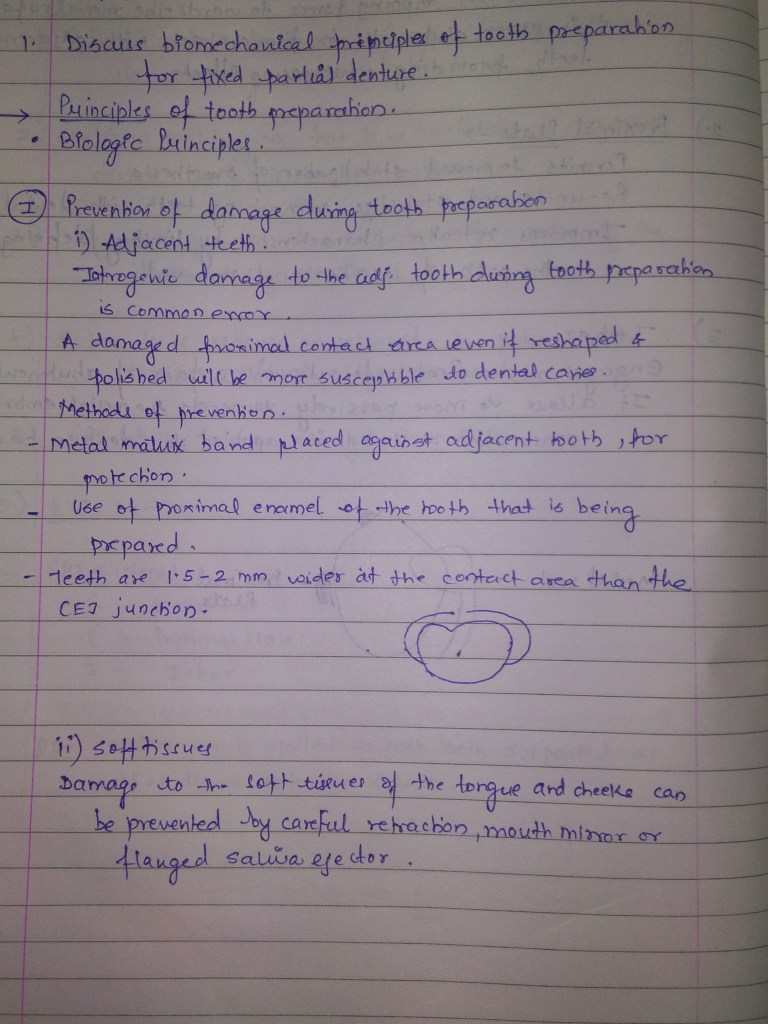 1. Discuss biomechanical principles of tooth preparation
for fixed partial denture.
→ Principles of tooth preparation.
• Biologic Principles.
I Prevention of damage during tooth preparation
i) Adjacent teeth.
Iatrogenic damage to the adj. tooth during tooth preparation
is common error.
A damaged proximal contact area even if reshaped &
polished will be more susceptible to dental caries.
Methods of prevention.
- Metal matrix band placed against adjacent tooth, for
protection.
- Use of proximal enamel of the tooth that is being
prepared.
- Teeth are 1.5-2 mm wider at the contact area than the
CEJ junction.
ii) Soft tissues
Damage to the soft tissues of the tongue and cheeks can
be prevented by careful retraction, mouth mirror or
flanged saliva ejector.